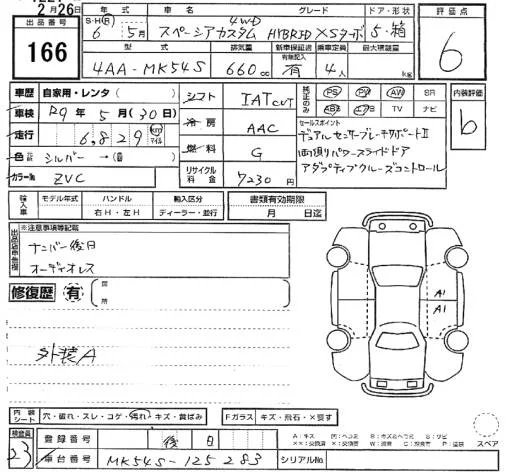 2月26日
出品番号
166
年式
車名
グレード
ドア・形状
評価点
S・H(R) 6年 5月
スペーシアカスタム 4WD HYBRID XSターボ
5・箱
6
型式
排気量
新車保証書
乗車定員
最大積載量
4AA-MK54S
660cc
有無記入
有
4人
kg
車歴
自家用・レンタ( )
車検
R9年5月(30日)
走行
6,829 km マイル
色
シルバー→( )
カラーNo
ZVC
シフト
IAT CVT
冷房
AAC
燃料
G
リサイクル料金
7230円
純正のみ
PS PW AW SR
ABS エアB TV ナビ
内装評価
b
セールスポイント
デュアルセンサーブレーキサポートⅡ
両側パワースライドドア
アダプティブクルーズコントロール
輸入車
モデル年式
ハンドル
右H・左H
輸入区分
ディーラー・並行
書類有効期限
月 日迄
※注意事項等記載
ナンバー後日
オーディオレス
修復歴 有
箇所
外装A
A1
A1
内装シート
穴・破れ・スレ・コゲ・汚れ・キズ・黄ばみ
Fガラス
キズ・飛石・X要す
スペア
検査員
23
登録番号
後日
車台番号
MK54S-125283
シリアルNo.